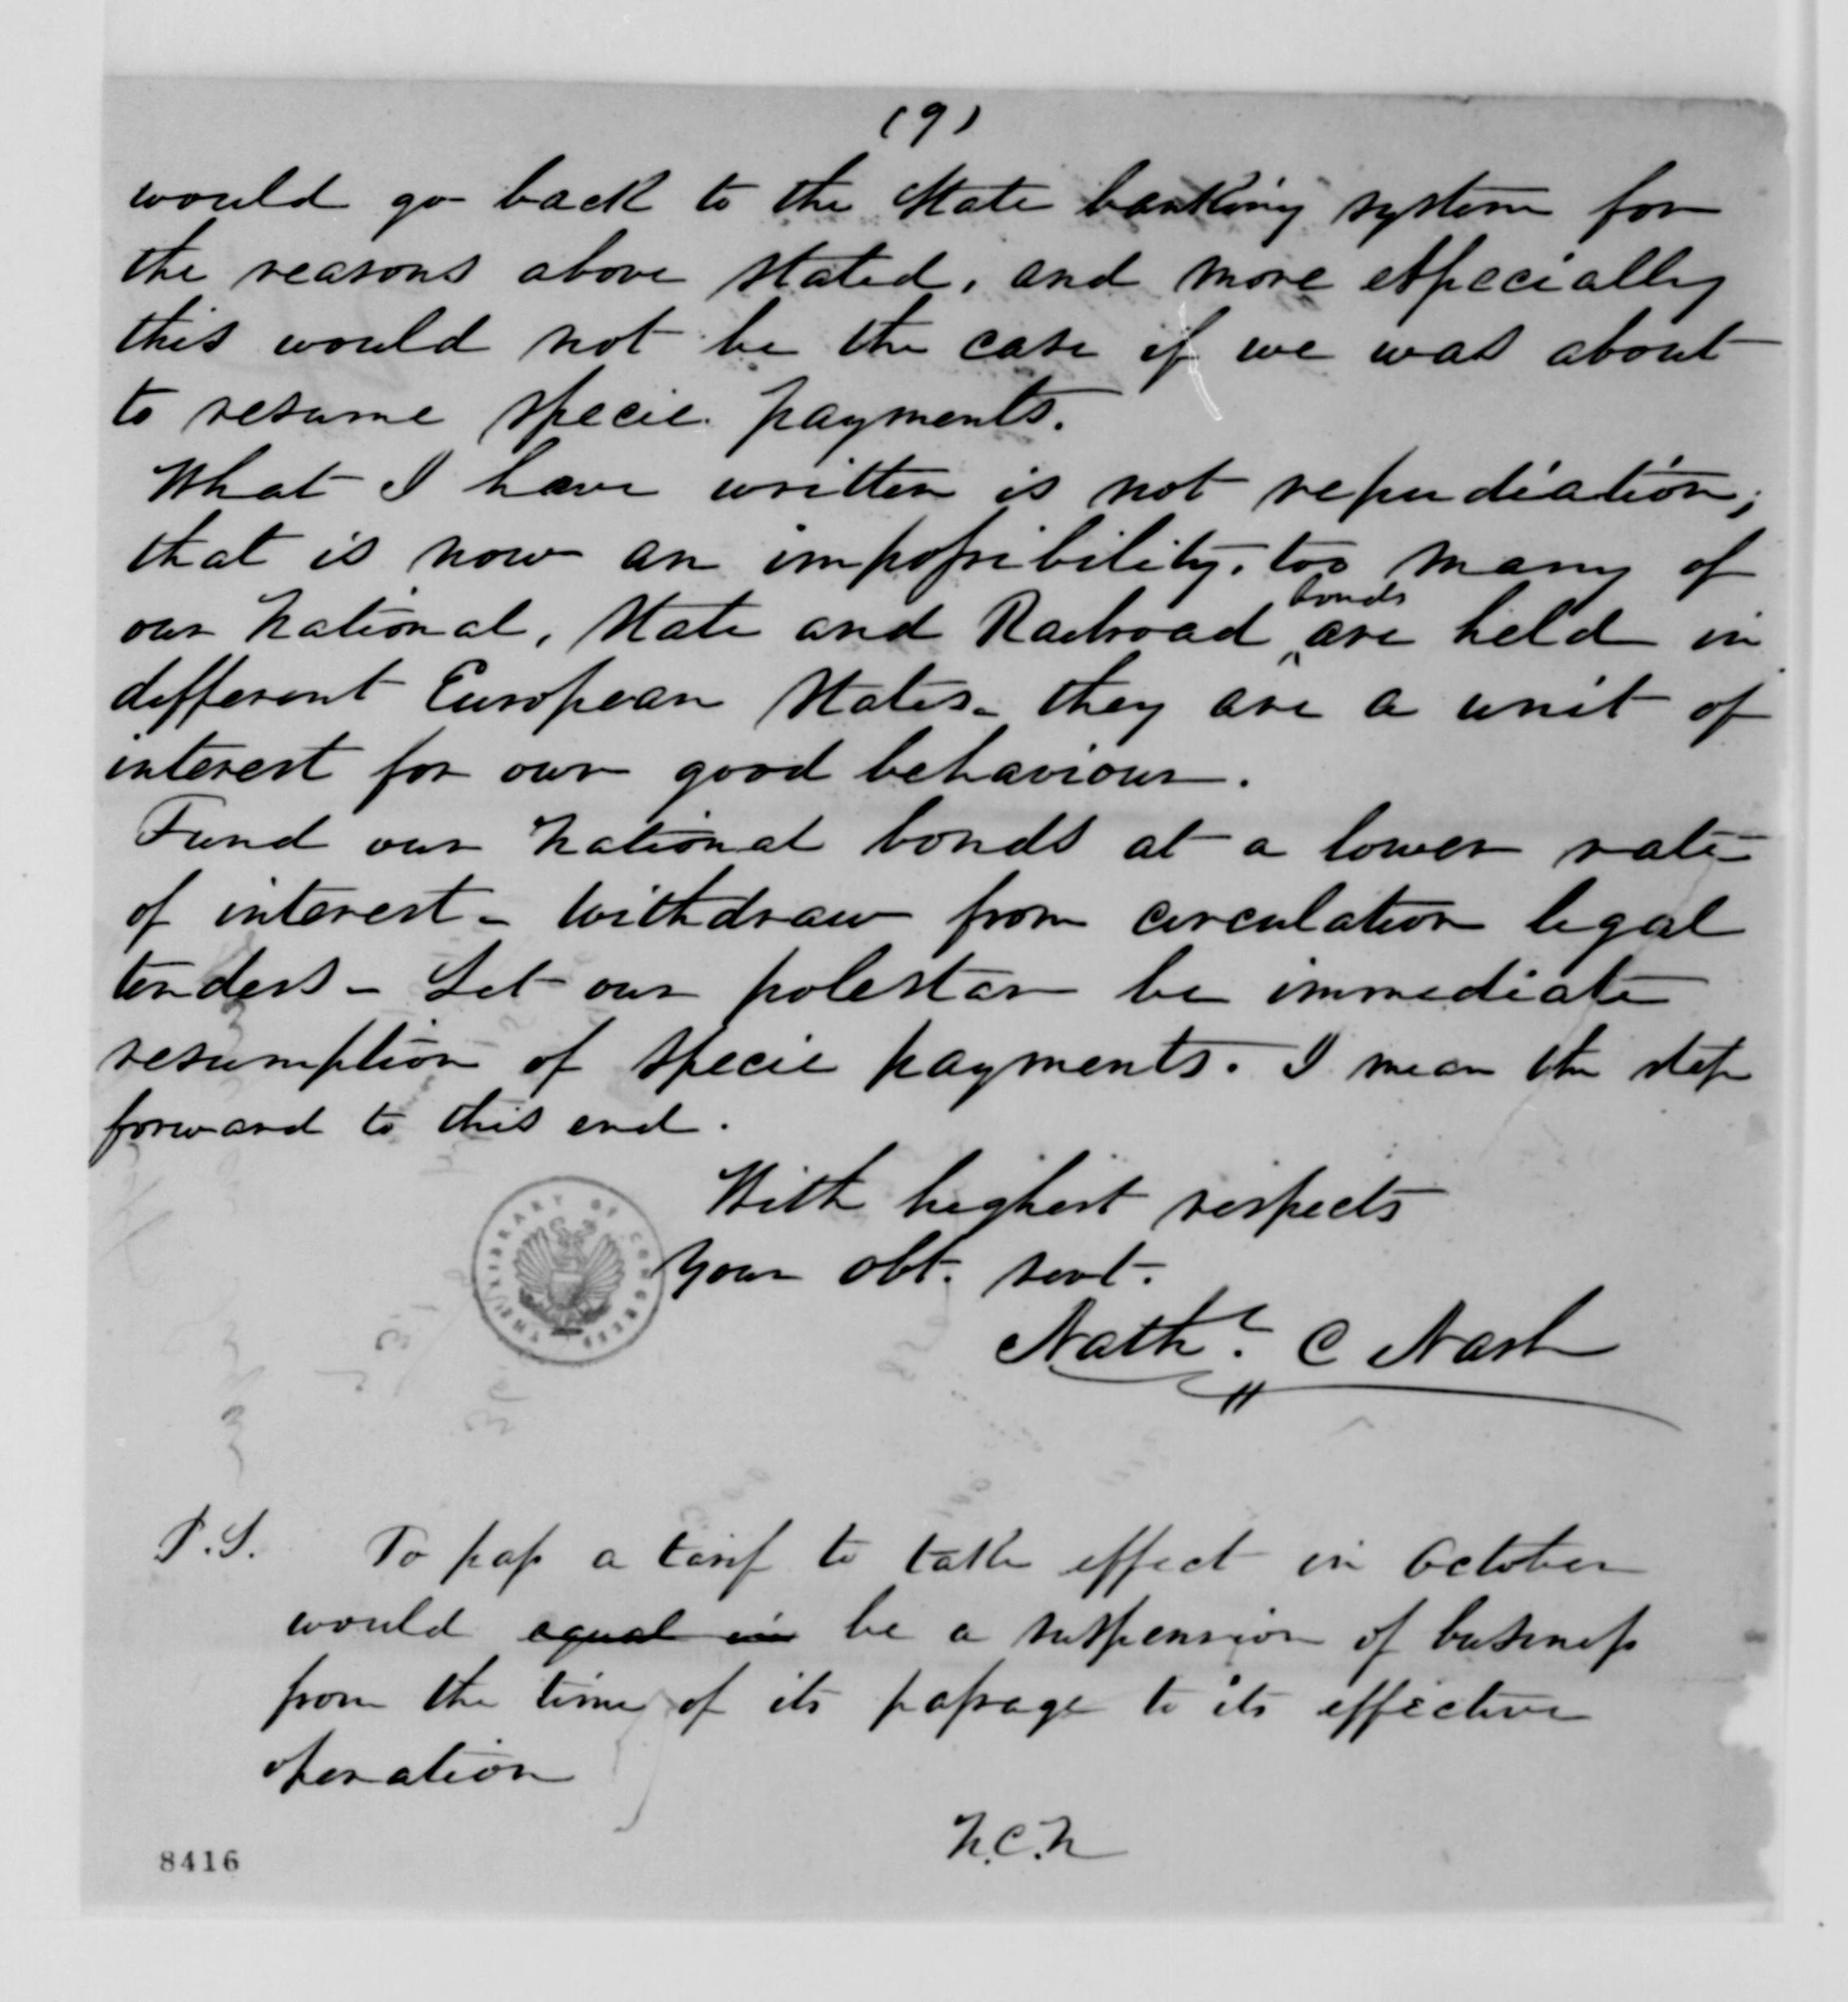 (9)
would go back to the State banking system for
the reasons above stated, and more especially
this would not be the case if we was about
to resume specie payments.
What I have written is not repudiation;
that is now an impossibility. too many of
our National, State and Railroad bonds are held in
different European States - they are a unit of
interest for our good behaviour.
Fund our National bonds at a lower rate
of interest - Withdraw from circulation legal
tenders - Let our polestar be immediate
resumption of specie payments. I mean the step
forward to this end.
With highest respects
Your obt. servt.
Nathl. C Nash
THE LIBRARY OF CONGRESS
P.S. To pass a tarif to take effect in October
would equal in be a suspension of business
from the time of its passage to its effective
operation
N.C.N
8416